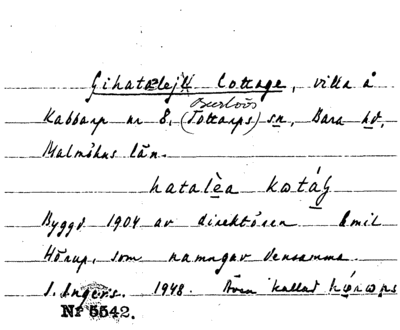 Gihatalejll Cottage, villa å
Burlövs
Kabbarp nr 8, (Tottarps) sn, Bara hd,
Malmöhus län.
hatalèa
Byggd 1904 av direktören Emil
Hörup, som namngav densamma.
I. Ingers. 1948. Även kallad
Nr 5542.